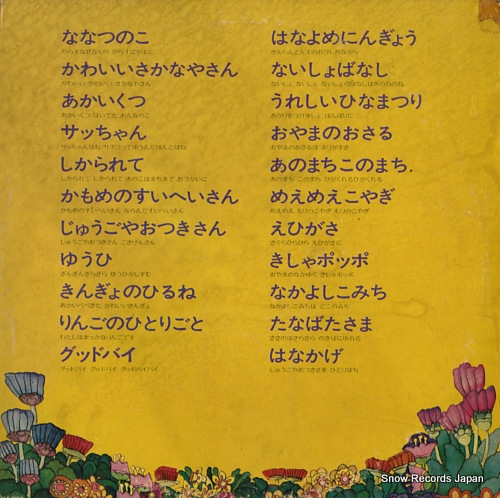 ななつのこ
からすなぜなくの からすはやまに
かわいいさかなやさん
かわいい かわいい さかなやさん
あかいくつ
あかいくつ はいてた おんなのこ
サッちゃん
サッちゃんはね サチコってゆうんだほんとはね
しかられて
しかられて しかられて あのこはまちまで おつかいに
かもめのすいへいさん
かもめのすいへいさん ならんだすいへいさん
じゅうごやおつきさん
じゅうごやおつきさん ごきげんさん
ゆうひ
ぎんぎんぎらぎら ゆうひがしずむ
きんぎょのひるね
あかいべべきた かわいいきんぎょ
りんごのひとりごと
わたしはまっかなりんごです
グッドバイ
グッドバイ グッドバイ グッドバイバイ
はなよめにんぎょう
きんらんどんすのおびしめながら
ないしょばなし
ないしょ ないしょ ないしょのはなしはあのねのね
うれしいひなまつり
あかりをつけましょ ぼんぼりに
おやまのおさる
おやまのおさるは まりがすき
あのまちこのまち
あのまち このまち ひがくれるひがくれる
めえめえこやぎ
めえめえ もりのこやぎ もりのこやぎ
えひがさ
さくらひらひら えひがさに
きしゃポッポ
おやまのなかゆく きしゃポッポ
なかよしこみち
なかよしこみちは どこのみち
たなばたさま
ささのはさらさら のきばにゆれる
はなかげ
じゅうごやおつきさま ひとりぼち
Snow Records Japan